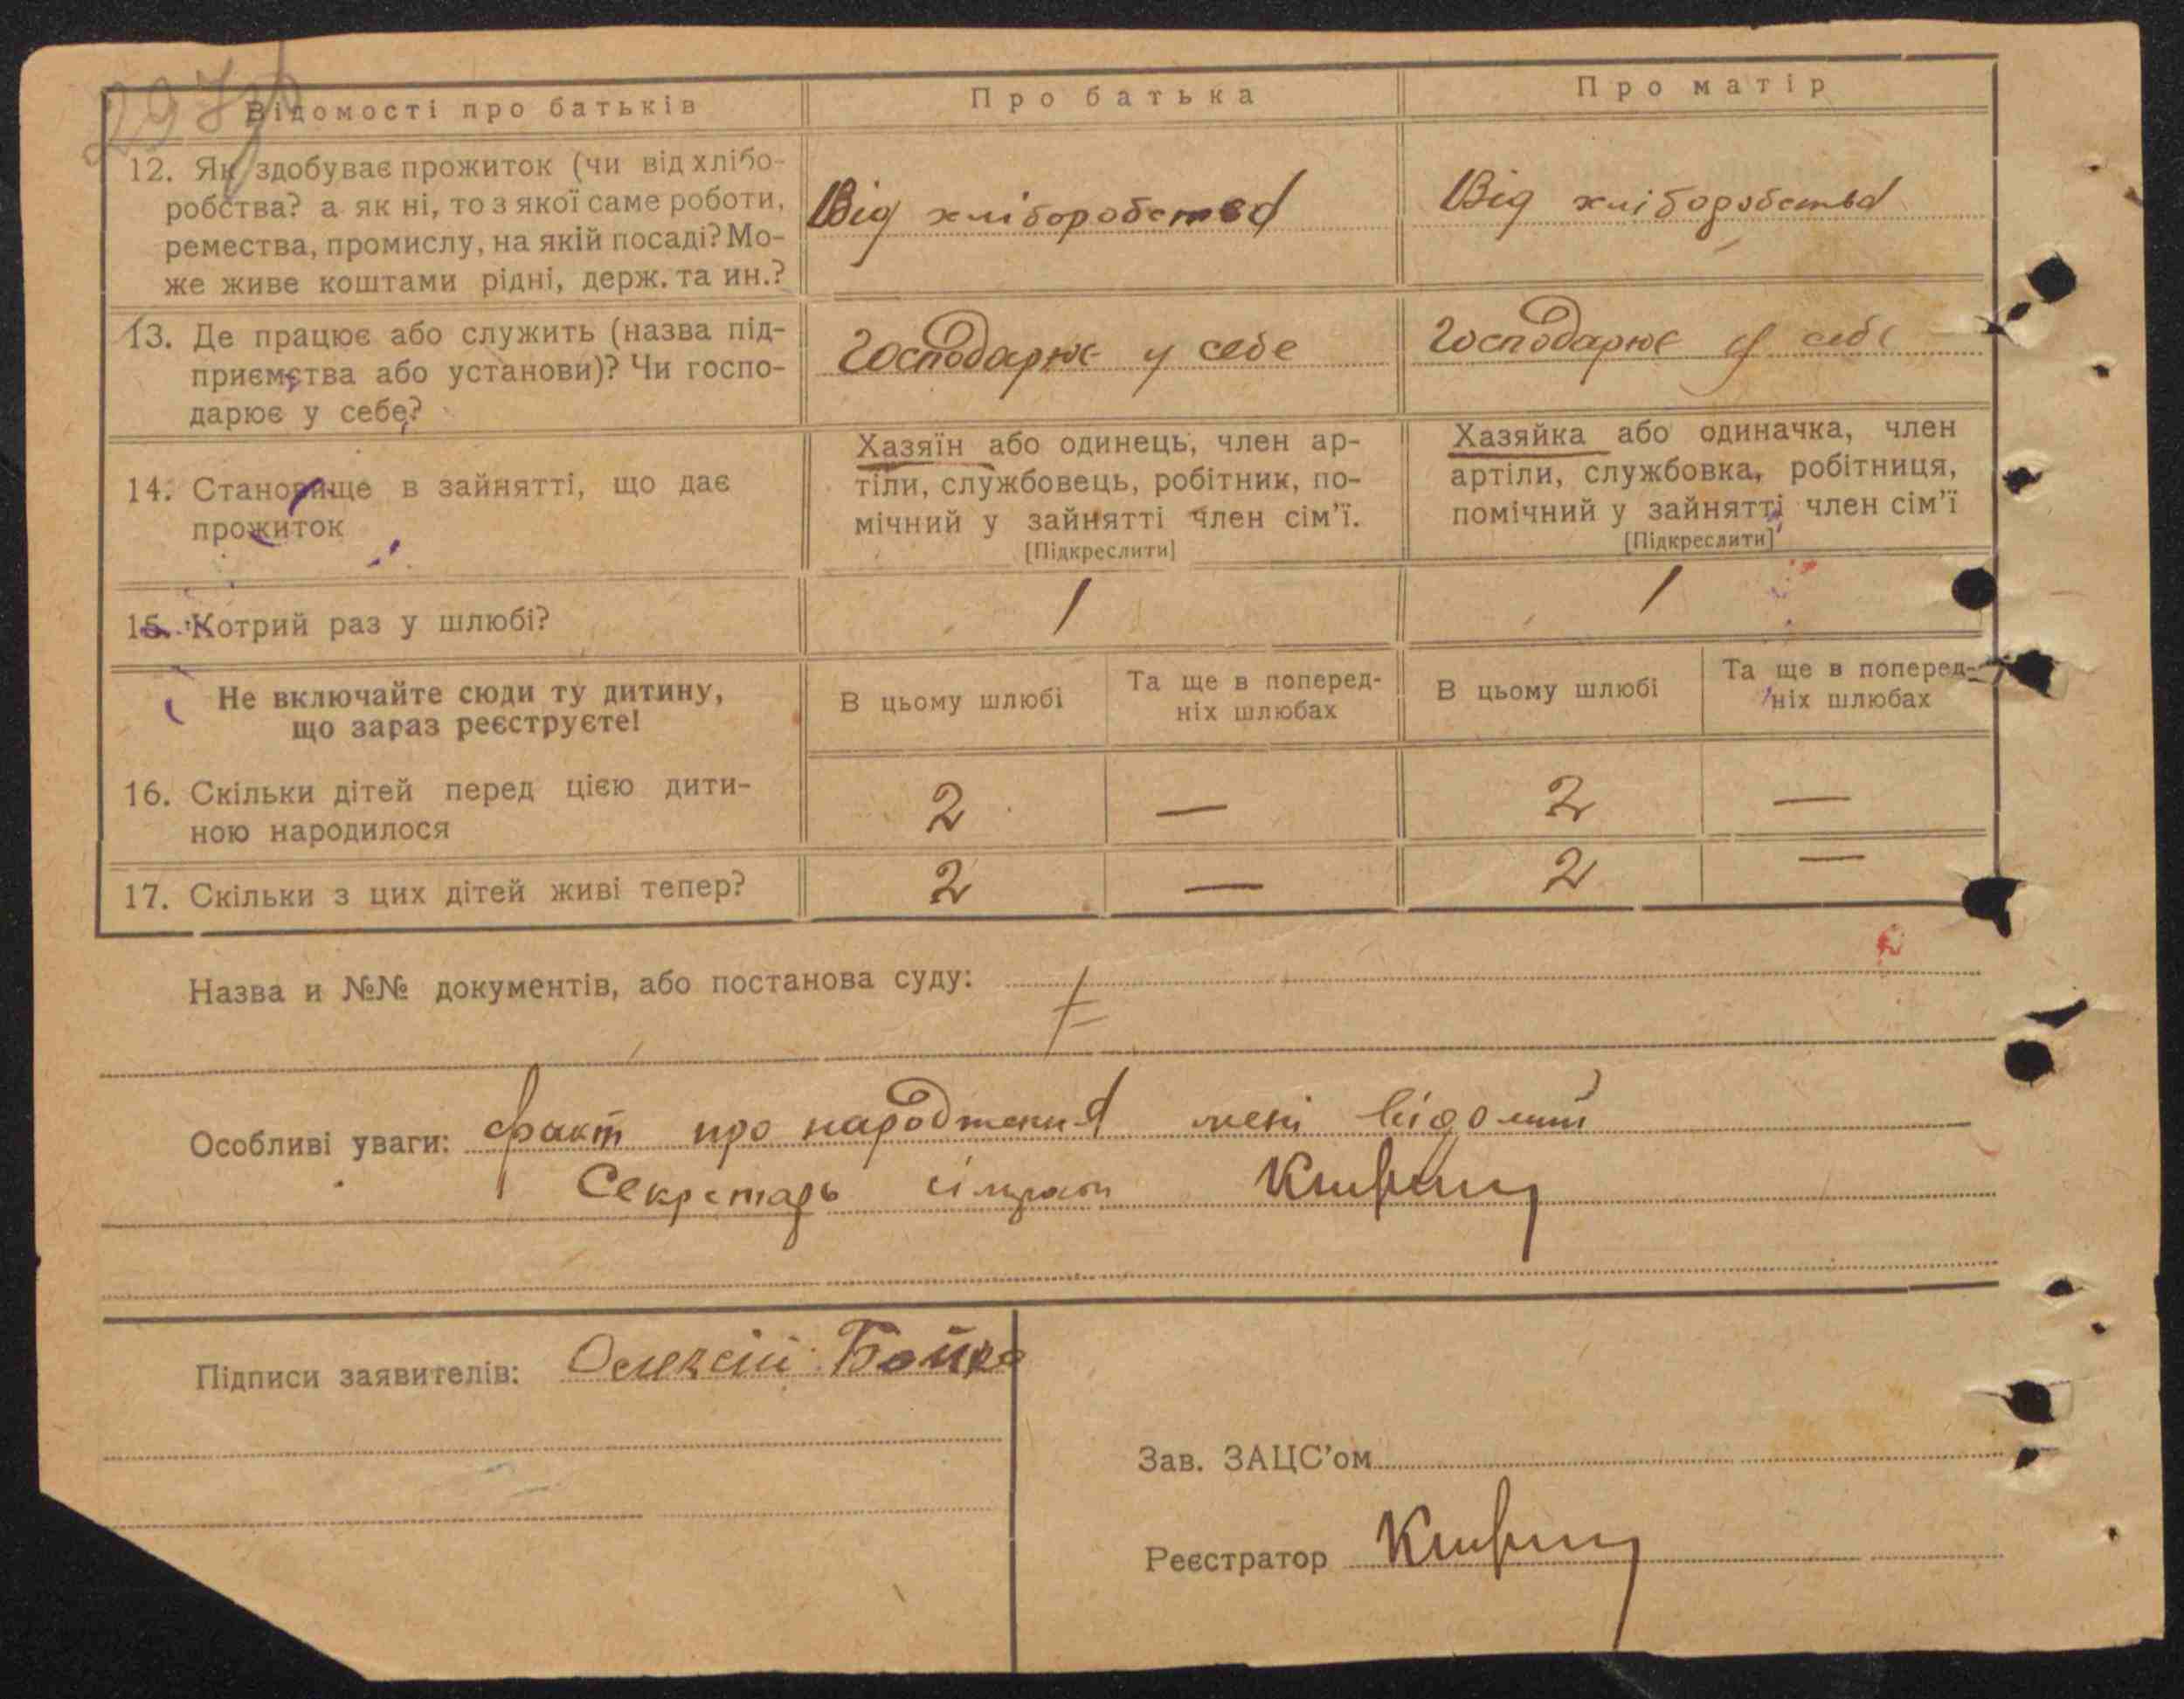 Відомості про батьків
Про батька
Про матір
12. Як здобуває прожиток (чи від хлібо-
робства? а як ні, то з якої саме роботи,
ремества, промислу, на якій посаді? Мо-
же живе коштами рідні, держ. та ин.?
Від хліборобства
Від хліборобства
13. Де працює або служить (назва під-
приємства або установи)? Чи госпо-
дарює у себе?
Господарює у себе
Господарює у себе
14. Становище в зайнятті, що дає
прожиток
Хазяїн або одинець, член ар-
тіли, службовець, робітник, по-
мічний у зайнятті член сім'ї.
[Підкреслити]
Хазяйка або одиначка, член
артіли, службовка, робітниця,
помічний у зайнятті член сім'ї
[Підкреслити]
15. Котрий раз у шлюбі?
1
1
Не включайте сюди ту дитину,
що зараз реєструєте!
В цьому шлюбі
Та ще в поперед-
ніх шлюбах
В цьому шлюбі
Та ще в поперед-
ніх шлюбах
16. Скільки дітей перед цією дити-
ною народилося
2 — 2 —
17. Скільки з цих дітей живі тепер?
2 — 2 —
Назва и №№ документів, або постанова суду:
Особливі уваги: факт про народження мені відомий
Секретарь сільради
Підписи заявителів: Олексій Бойко
Зав. ЗАЦС'ом
Реєстратор